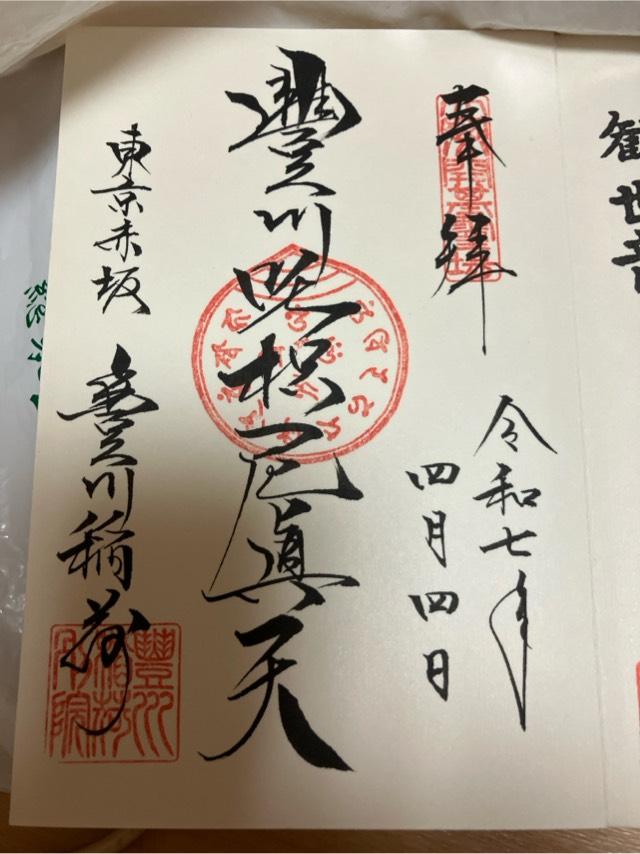 観世音
奉拝
令和七年
四月四日
豐川吒枳尼眞天
東京赤坂
豊川稲荷